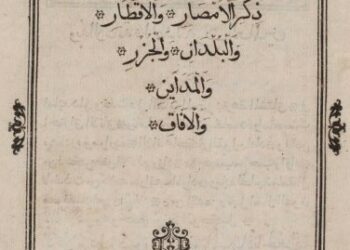 ذكر الأمصار * والأقطار *
والبلدان * والجزر *
والمداين *
والآفاق *